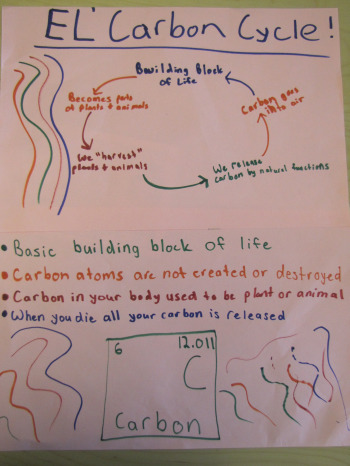 EL' Carbon Cycle!
Bwilding Block
of Life
Becomes parts
of plants + animals
Carbon goes
into air
We "harvest"
plants + animals
We release
carbon by natural functions
• Basic building block of life
• Carbon atoms are not created or destroyed
• Carbon in your body used to be plant or animal
• When you die all your carbon is released
6 12.011
C
Carbon